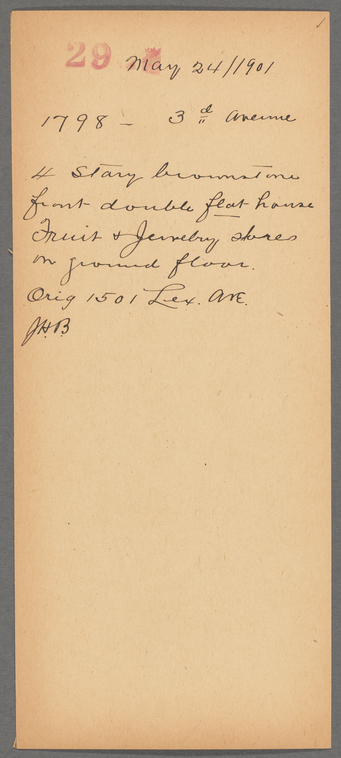 29 May 24/1901
1798 - 3d Avenue
4 Story brownstone
front double flat house
Fruit & Jewelry stores
on ground floor.
Orig 1501 Lex. Ave.
JHB